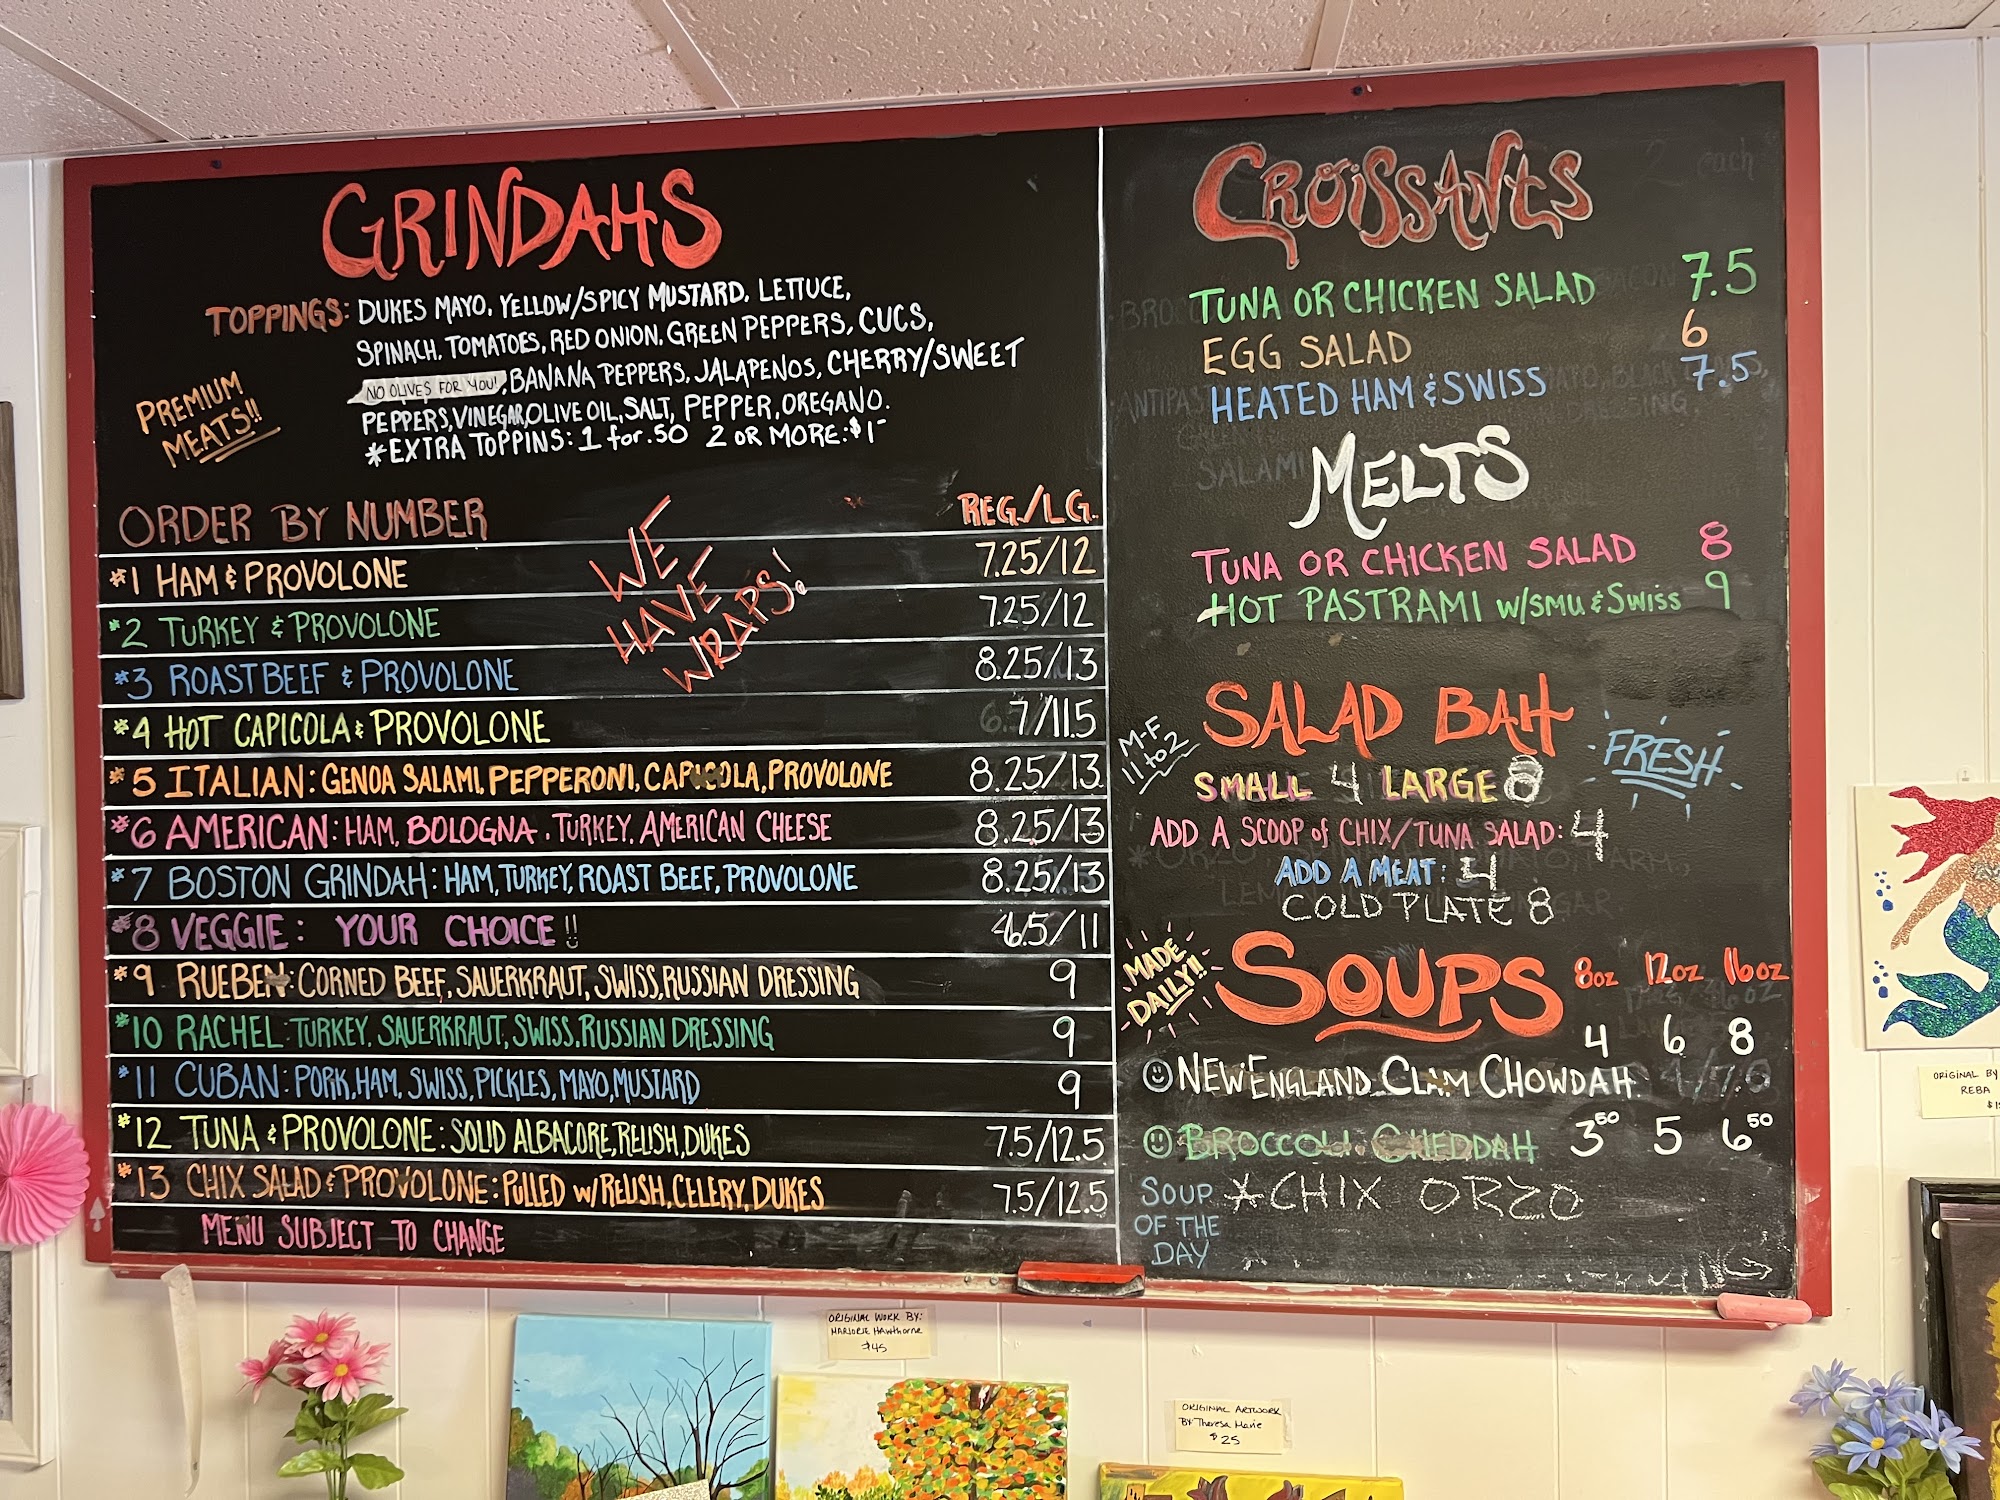 GRINDAHS
TOPPINGS: DUKES MAYO, YELLOW/SPICY MUSTARD, LETTUCE,
SPINACH, TOMATOES, RED ONION, GREEN PEPPERS, CUCS,
NO OLIVES FOR YOU!, BANANA PEPPERS, JALAPENOS, CHERRY/SWEET
PEPPERS, VINEGAR, OLIVE OIL, SALT, PEPPER, OREGANO.
*EXTRA TOPPINS: 1 for .50 2 OR MORE: $1-
PREMIUM
MEATS!!
ORDER BY NUMBER REG./LG.
WE
HAVE
WRAPS!
#1 HAM & PROVOLONE 7.25/12
#2 TURKEY & PROVOLONE 7.25/12
#3 ROAST BEEF & PROVOLONE 8.25/13
#4 HOT CAPICOLA & PROVOLONE 7/11.5
#5 ITALIAN: GENOA SALAMI, PEPPERONI, CAPICOLA, PROVOLONE 8.25/13
#6 AMERICAN: HAM, BOLOGNA, TURKEY, AMERICAN CHEESE 8.25/13
#7 BOSTON GRINDAH: HAM, TURKEY, ROAST BEEF, PROVOLONE 8.25/13
#8 VEGGIE: YOUR CHOICE!! 6.5/11
#9 RUEBEN: CORNED BEEF, SAUERKRAUT, SWISS, RUSSIAN DRESSING 9
#10 RACHEL: TURKEY, SAUERKRAUT, SWISS, RUSSIAN DRESSING 9
#11 CUBAN: PORK, HAM, SWISS, PICKLES, MAYO, MUSTARD 9
#12 TUNA & PROVOLONE: SOLID ALBACORE, RELISH, DUKES 7.5/12.5
#13 CHIX SALAD & PROVOLONE: PULLED W/RELISH, CELERY, DUKES 7.5/12.5
MENU SUBJECT TO CHANGE
CROISSANTS
TUNA OR CHICKEN SALAD 7.5
EGG SALAD 6
HEATED HAM & SWISS 7.5
MELTS
TUNA OR CHICKEN SALAD 8
HOT PASTRAMI W/SMU & SWISS 9
SALAD BAH
M-F
11 to 2
FRESH
SMALL 4 LARGE 8
ADD A SCOOP of CHIX/TUNA SALAD: 4
ADD A MEAT: 4
COLD PLATE 8
MADE
DAILY!!
SOUPS 8oz 12oz 16oz
4 6 8
NEW ENGLAND CLAM CHOWDAH
BROCCOLI CHEDDAH 3.50 5 6.50
SOUP
OF THE
DAY
*CHIX ORZO
ORIGINAL WORK BY:
MARJORIE HAWTHORNE
$45
ORIGINAL ARTWORK
BY Theresa Marie
$25
ORIGINAL BY
REBA